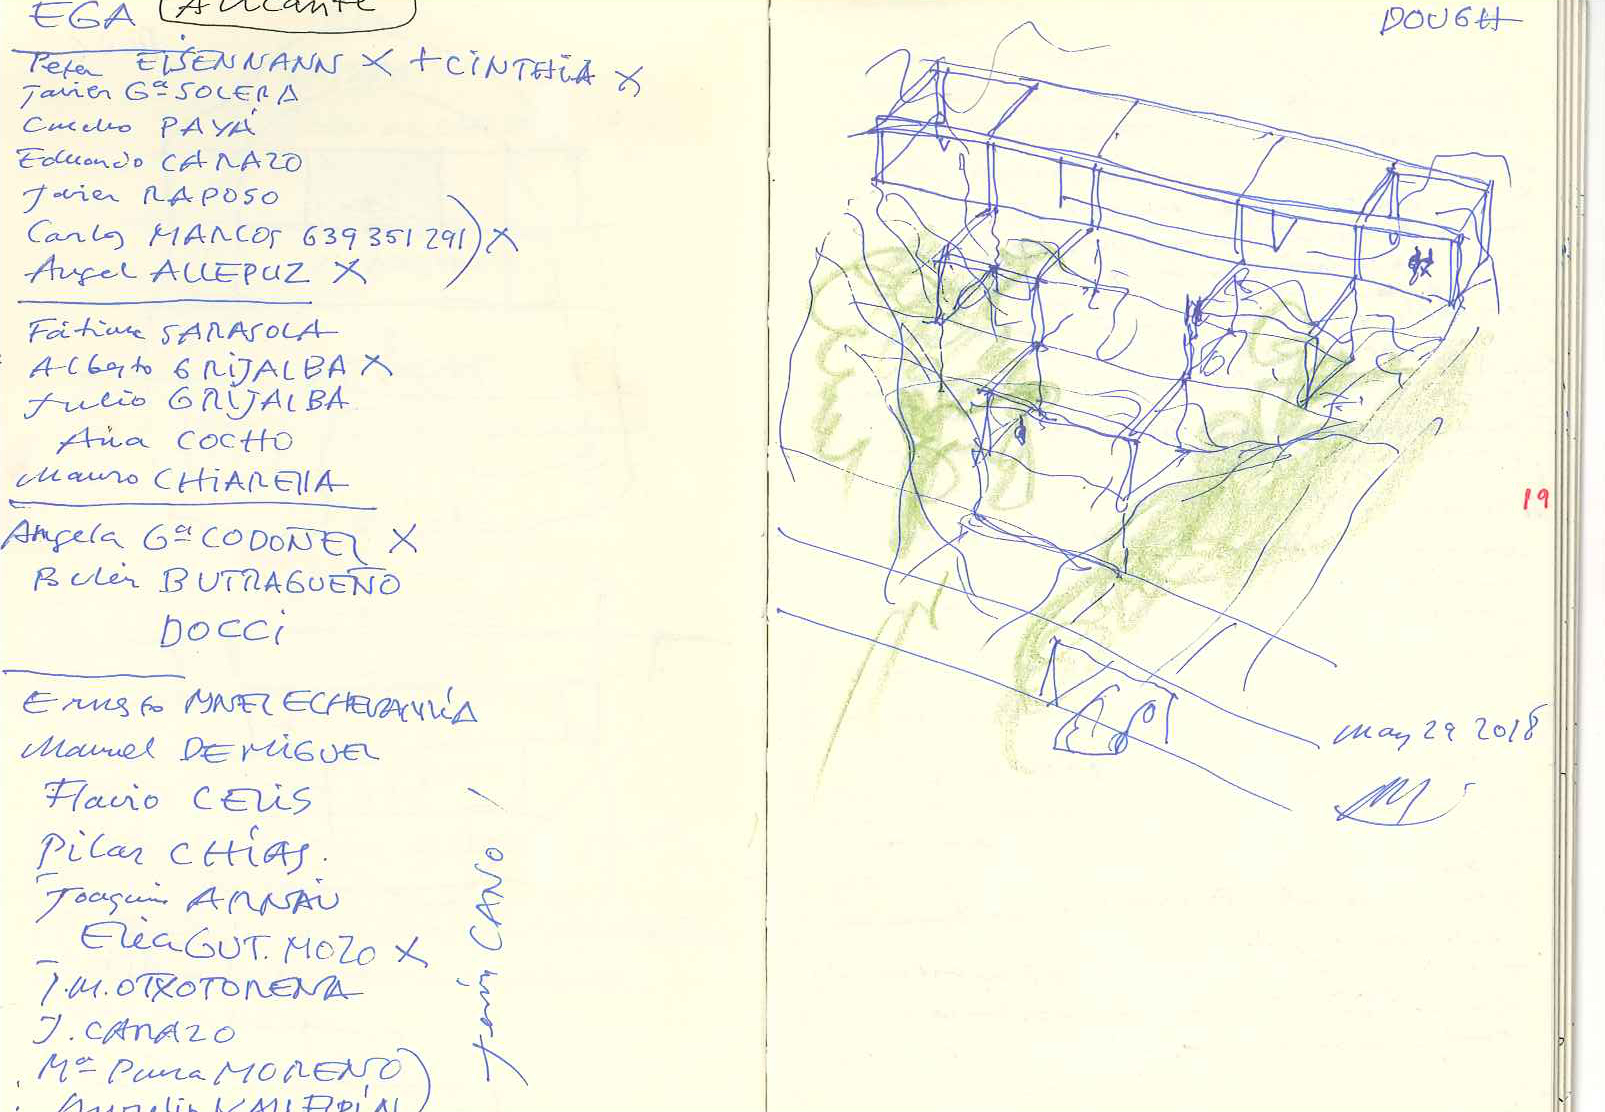 EGA Alicante
Peter EISENNANN X + CINTHIA X
Javier Gª SOLERA
Concho PAYÁ
Eduardo CARAZO
Javier RAPOSO
Carlos MARCOS 639 351 291) X
Angel ALLEPUZ X
Fátima SARASOLA
Alberto GRIJALBA X
Julio GRIJALBA
Ana COCHO
Mauro CHIARELLA
Angela Gª CODOÑER X
Belén BUTRAGUEÑO
DOCCI
Ernesto ECHEVARRÍA
Manuel DE MIGUEL
Flavio CELIS
Pilar CHÍAS.
Joaquin ARNAU
Elia GUT. MOZO X
J.M. OTXOTORENA
J. CARAZO
Mª Pura MORENO
Aurelio VALLESPÍN
CANO
DOUGH
19
May 29 2018